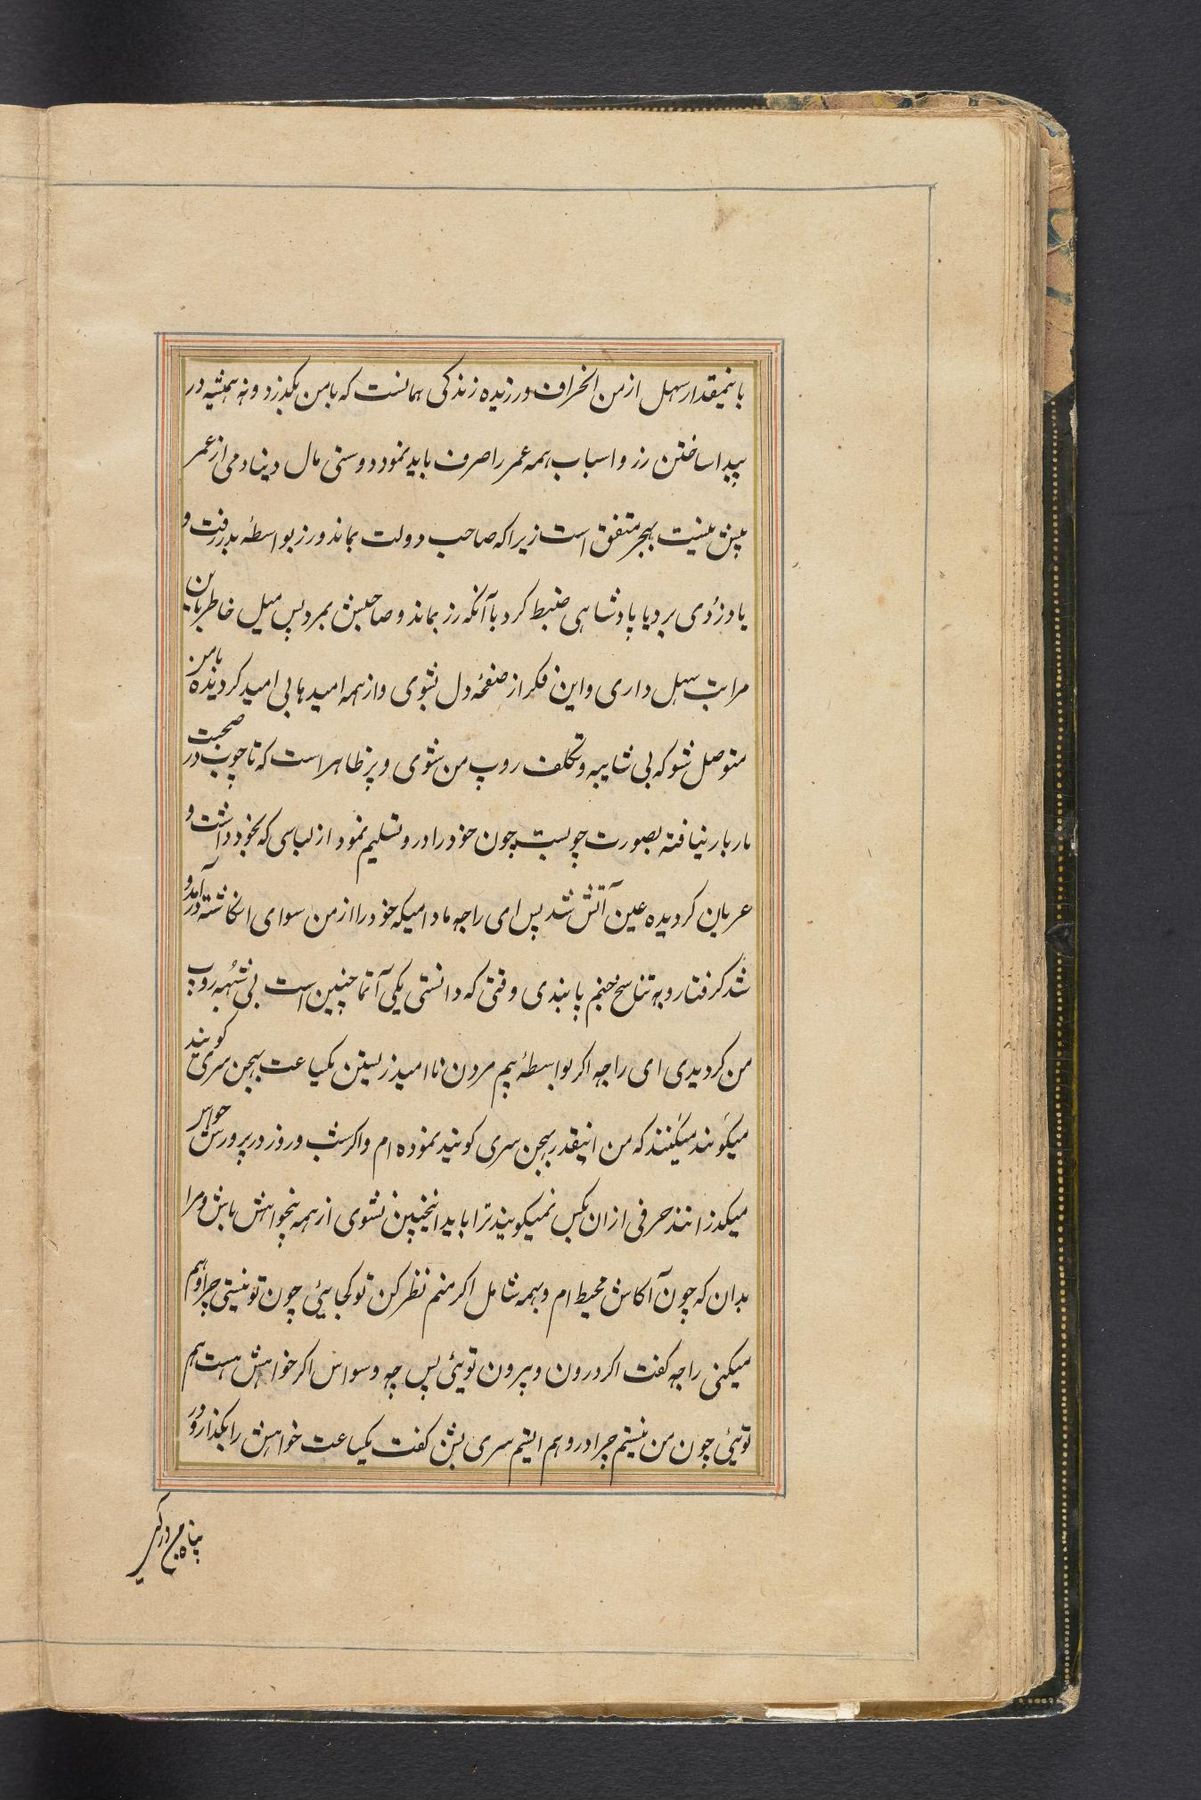 باینمقدار سهل از من انحراف ورزیده زندکی همانست که با من بکذرد و نه همیشه در
پیدا ساختن زر و اسباب همه عمر را صرف باید نمود دوستی مال دنیا دمی از عمر
پیش نیست بهجر متفق است زیرا که صاحب دولت بماند و زر بواسطهٔ بدر رفت و
یا دزدی برد یا پادشاهی ضبط کرد با آنکه زر بماند و صاحبش بمرد پس میل خاطر باین
مراتب سهل داری و این فکر از صفحهٔ دل بشوی و از همه امیدها بی امید کردیده با من
متوصل شو که بی شایبه و تکلف روپ من شوی و پر ظاهر است که تا چوب در صحبت
نار بار نیافته بصورت چوبست چون خود را درو تسلیم نمود از لباسی که بخود داشت و
عریان کردیده عین آتش شد پس ای راجه مادامیکه خود را از من سوای انکاشته در آمد و
شد کرفتار و به تناسخ جنم پابندی وقتی که دانستی یکی آتما چنین است بی شبهه روپ
من کردیدی ای راجه اکر بواسطهٔ بیم مردن نا امید زیستن یکساعت بهجن سری کوبند
میکویند میکنند که من اینقدر بهجن سری کوبند نموده ام و اکر شب و روز در پرورش حواس
میکذرانند حرفی از ان بکس نمیکویند ترا باید اینچنین نشوی از همه بیخواهش باش و مرا
بدان که چون آکاش محیط ام و بهمه شامل اکر منم نظر کن تو کجایئی چون تو نیستی چرا وهم
میکنی راجه کفت اکر درون و بیرون توئی پس چه وسواس اکر خواهش هست هم
توئی چون من نیستم چرا در وهم ایستم سری بشن کفت یکساعت خواهش را بکذار و در
پناه من در کیر